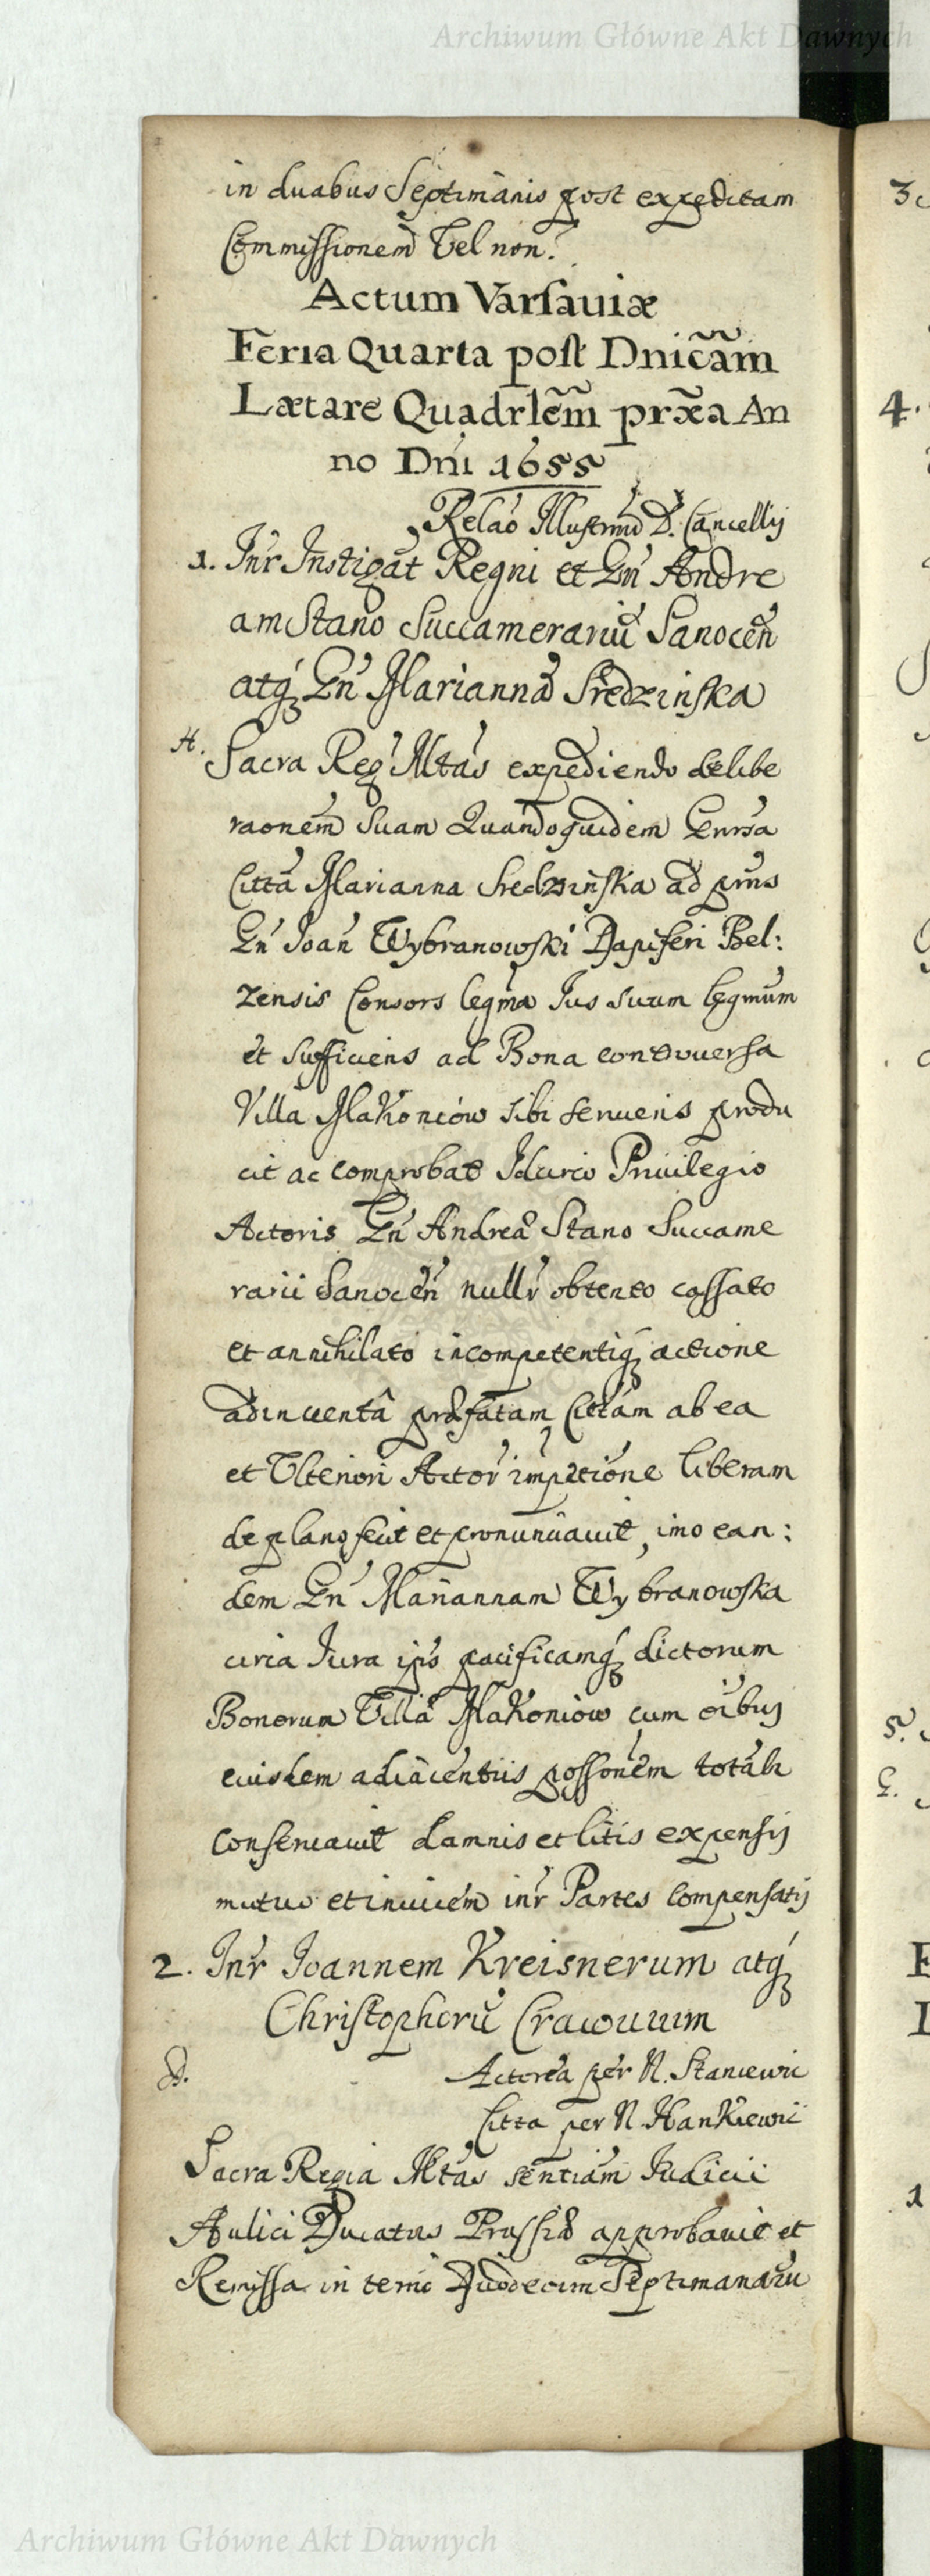 Archiwum Główne Akt Dawnych
in duabus Septimanis post expeditam
Commissionem Vel non.
Actum Varsauiæ
Feria Quarta post Dnicãm
Lætare Quadrlẽm prxã An
no Dni 1655
Relao Illustrmi D. Cancellij
1. Inr Instigat Regni et Gn Andre
am Stano Succamerariu Sanocen
atq Gn Marianna Sredzinska
A.
Sacra Reg Mtas expediendo delibe
raonem suam Quandoquidem Gnrsa
Citta Marianna Sredzinska ad prns
Gn Joan Wybranowski Dapiferi Bel:
zensis Consors legma Jus suum legmum
et sufficiens ad Bona controuersa
Villa Makoniow sibi seruiens produ
cit ac comprobat Idcirco Priuilegio
Actoris Gn Andrea Stano Succame
rarii Sanocen nullr obtento cassato
et annihilato incompetentiq actione
adinuentâ præfatam Cittam ab ea
et Vlteriori Actor imptione liberam
de plano fecit et pronunciauit, imo ean:
dem Gn Mariannam Wybranowska
circa Jura ips pacificamq dictorum
Bonorum Villa Makoniow cum oibus
eiusdem adiacentiis possonem totalr
conseruauit damnis et litis expensis
mutuo et inuicem inr Partes compensatis
2. Inr Joannem Kreisnerum atq
Christophoru Cracouium
D.
Actorea per N. Stanceuic
Citta per N. Hankiewic
Sacra Regia Mtas sentiam Judicii
Aulici Ducatus Prussiæ approbauit et
Remissa in termo Duodecim Septimanaru
3
4.
5.
6.
1
Archiwum Główne Akt Dawnych